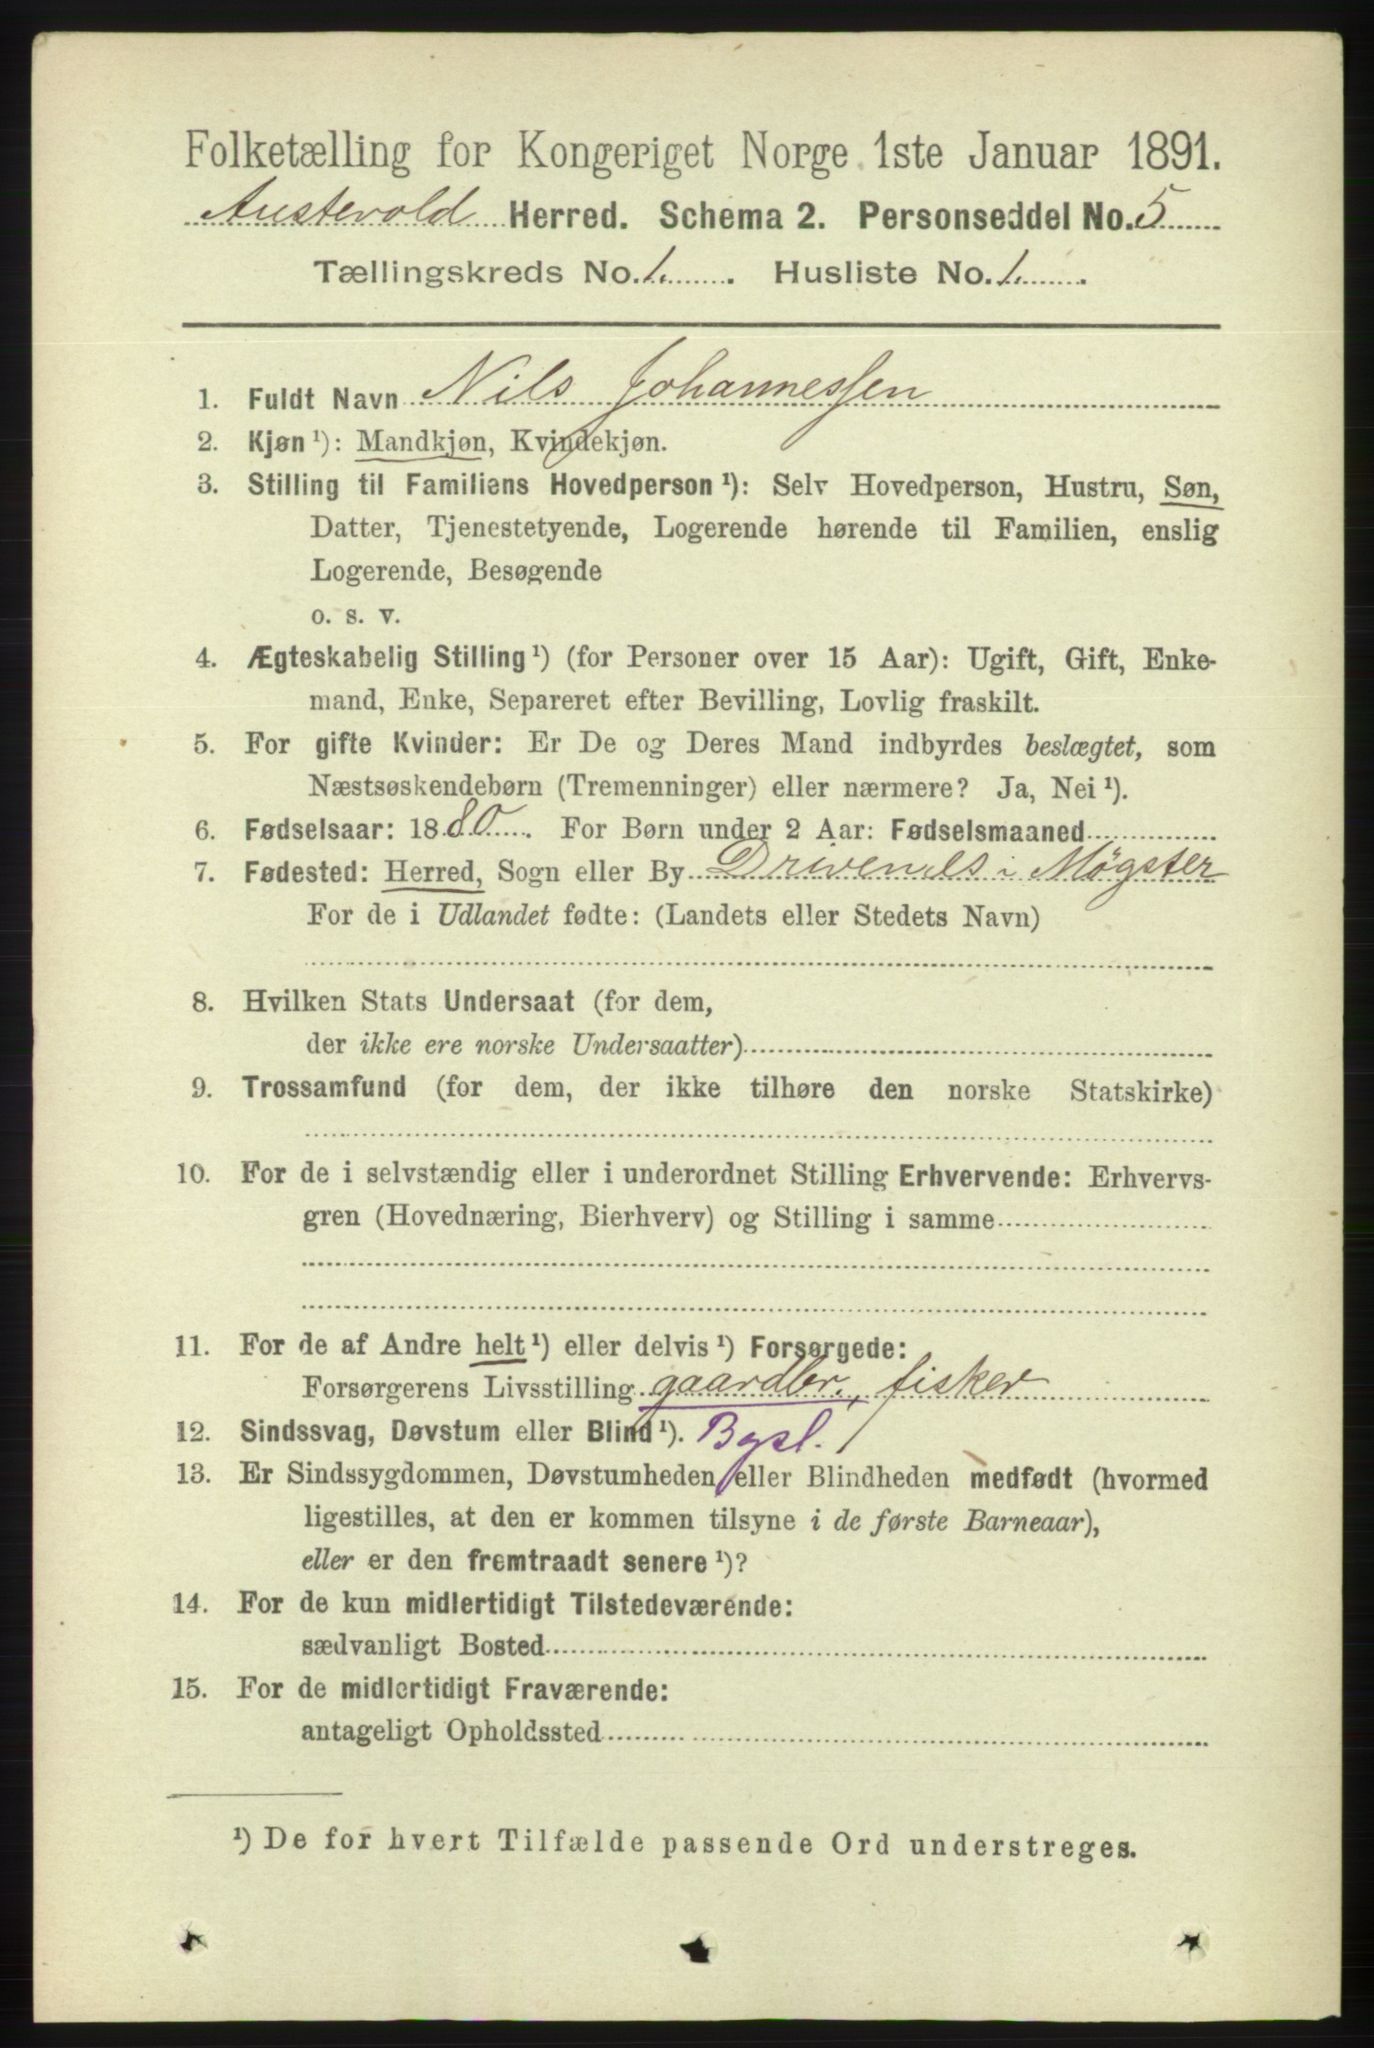 Folketælling for Kongeriget Norge 1ste Januar 1891.
Austevold Herred. Schema 2. Personseddel No. 5
Tællingskreds No. 1. Husliste No. 1.
1. Fuldt Navn Nils Johannessen
2. Kjøn ¹): Mandkjøn, Kvindekjøn.
3. Stilling til Familiens Hovedperson ¹): Selv Hovedperson, Hustru, Søn,
Datter, Tjenestetyende, Logerende hørende til Familien, enslig
Logerende, Besøgende
o. s. v.
4. Ægteskabelig Stilling ¹) (for Personer over 15 Aar): Ugift, Gift, Enke-
mand, Enke, Separeret efter Bevilling, Lovlig fraskilt.
5. For gifte Kvinder: Er De og Deres Mand indbyrdes beslægtet, som
Næstsøskendebørn (Tremenninger) eller nærmere? Ja, Nei ¹).
6. Fødselsaar: 1880. For Børn under 2 Aar: Fødselsmaaned
7. Fødested: Herred, Sogn eller By Drivenæs i Møgster
For de i Udlandet fødte: (Landets eller Stedets Navn)
8. Hvilken Stats Undersaat (for dem,
der ikke ere norske Undersaatter)
9. Trossamfund (for dem, der ikke tilhøre den norske Statskirke)
10. For de i selvstændig eller i underordnet Stilling Erhvervende: Erhvervs-
gren (Hovednæring, Bierhverv) og Stilling i samme
11. For de af Andre helt ¹) eller delvis ¹) Forsørgede:
Forsørgerens Livsstilling gaardbr., fisker
12. Sindssvag, Døvstum eller Blind ¹). Bgsl.
13. Er Sindssygdommen, Døvstumheden eller Blindheden medfødt (hvormed
ligestilles, at den er kommen tilsyne i de første Barneaar),
eller er den fremtraadt senere ¹)?
14. For de kun midlertidigt Tilstedeværende:
sædvanligt Bosted
15. For de midlertidigt Fraværende:
antageligt Opholdssted
¹) De for hvert Tilfælde passende Ord understreges.